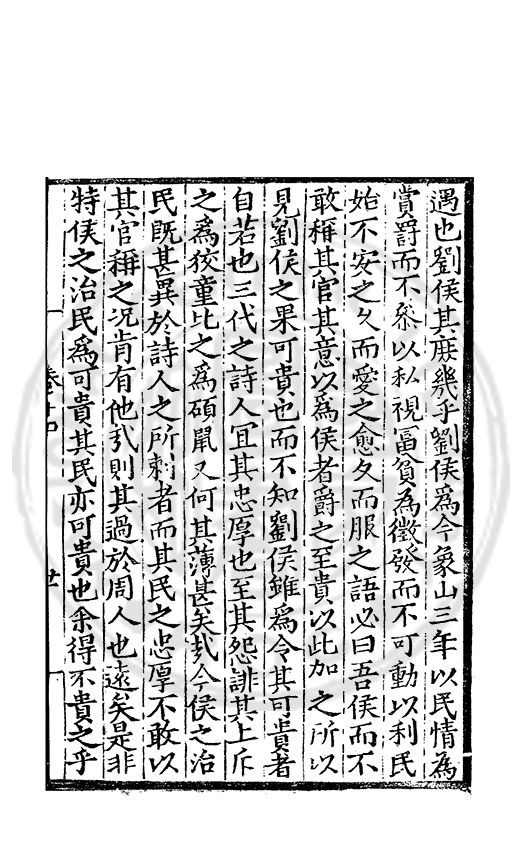 遇也劉侯其庶幾乎劉侯爲令象山三年以民情爲
賞罰而不叅以私視富貧為徵發而不可動以利民
始不安之久而愛之愈久而服之語必曰吾侯而不
敢稱其官其意以爲侯者爵之至貴以此加之所以
見劉侯之果可貴也而不知劉侯雖爲令其可貴者
自若也三代之詩人宜其忠厚也至其怨誹其上斥
之爲狡童比之爲碩鼠又何其薄甚矣㢤今侯之治
民既甚異於詩人之所刺者而其民之忠厚不敢以
其官稱之况肯有他㢤則其過於周人也遠矣是非
特侯之治民爲可貴其民亦可貴也余得不貴之乎
卷十四
廿